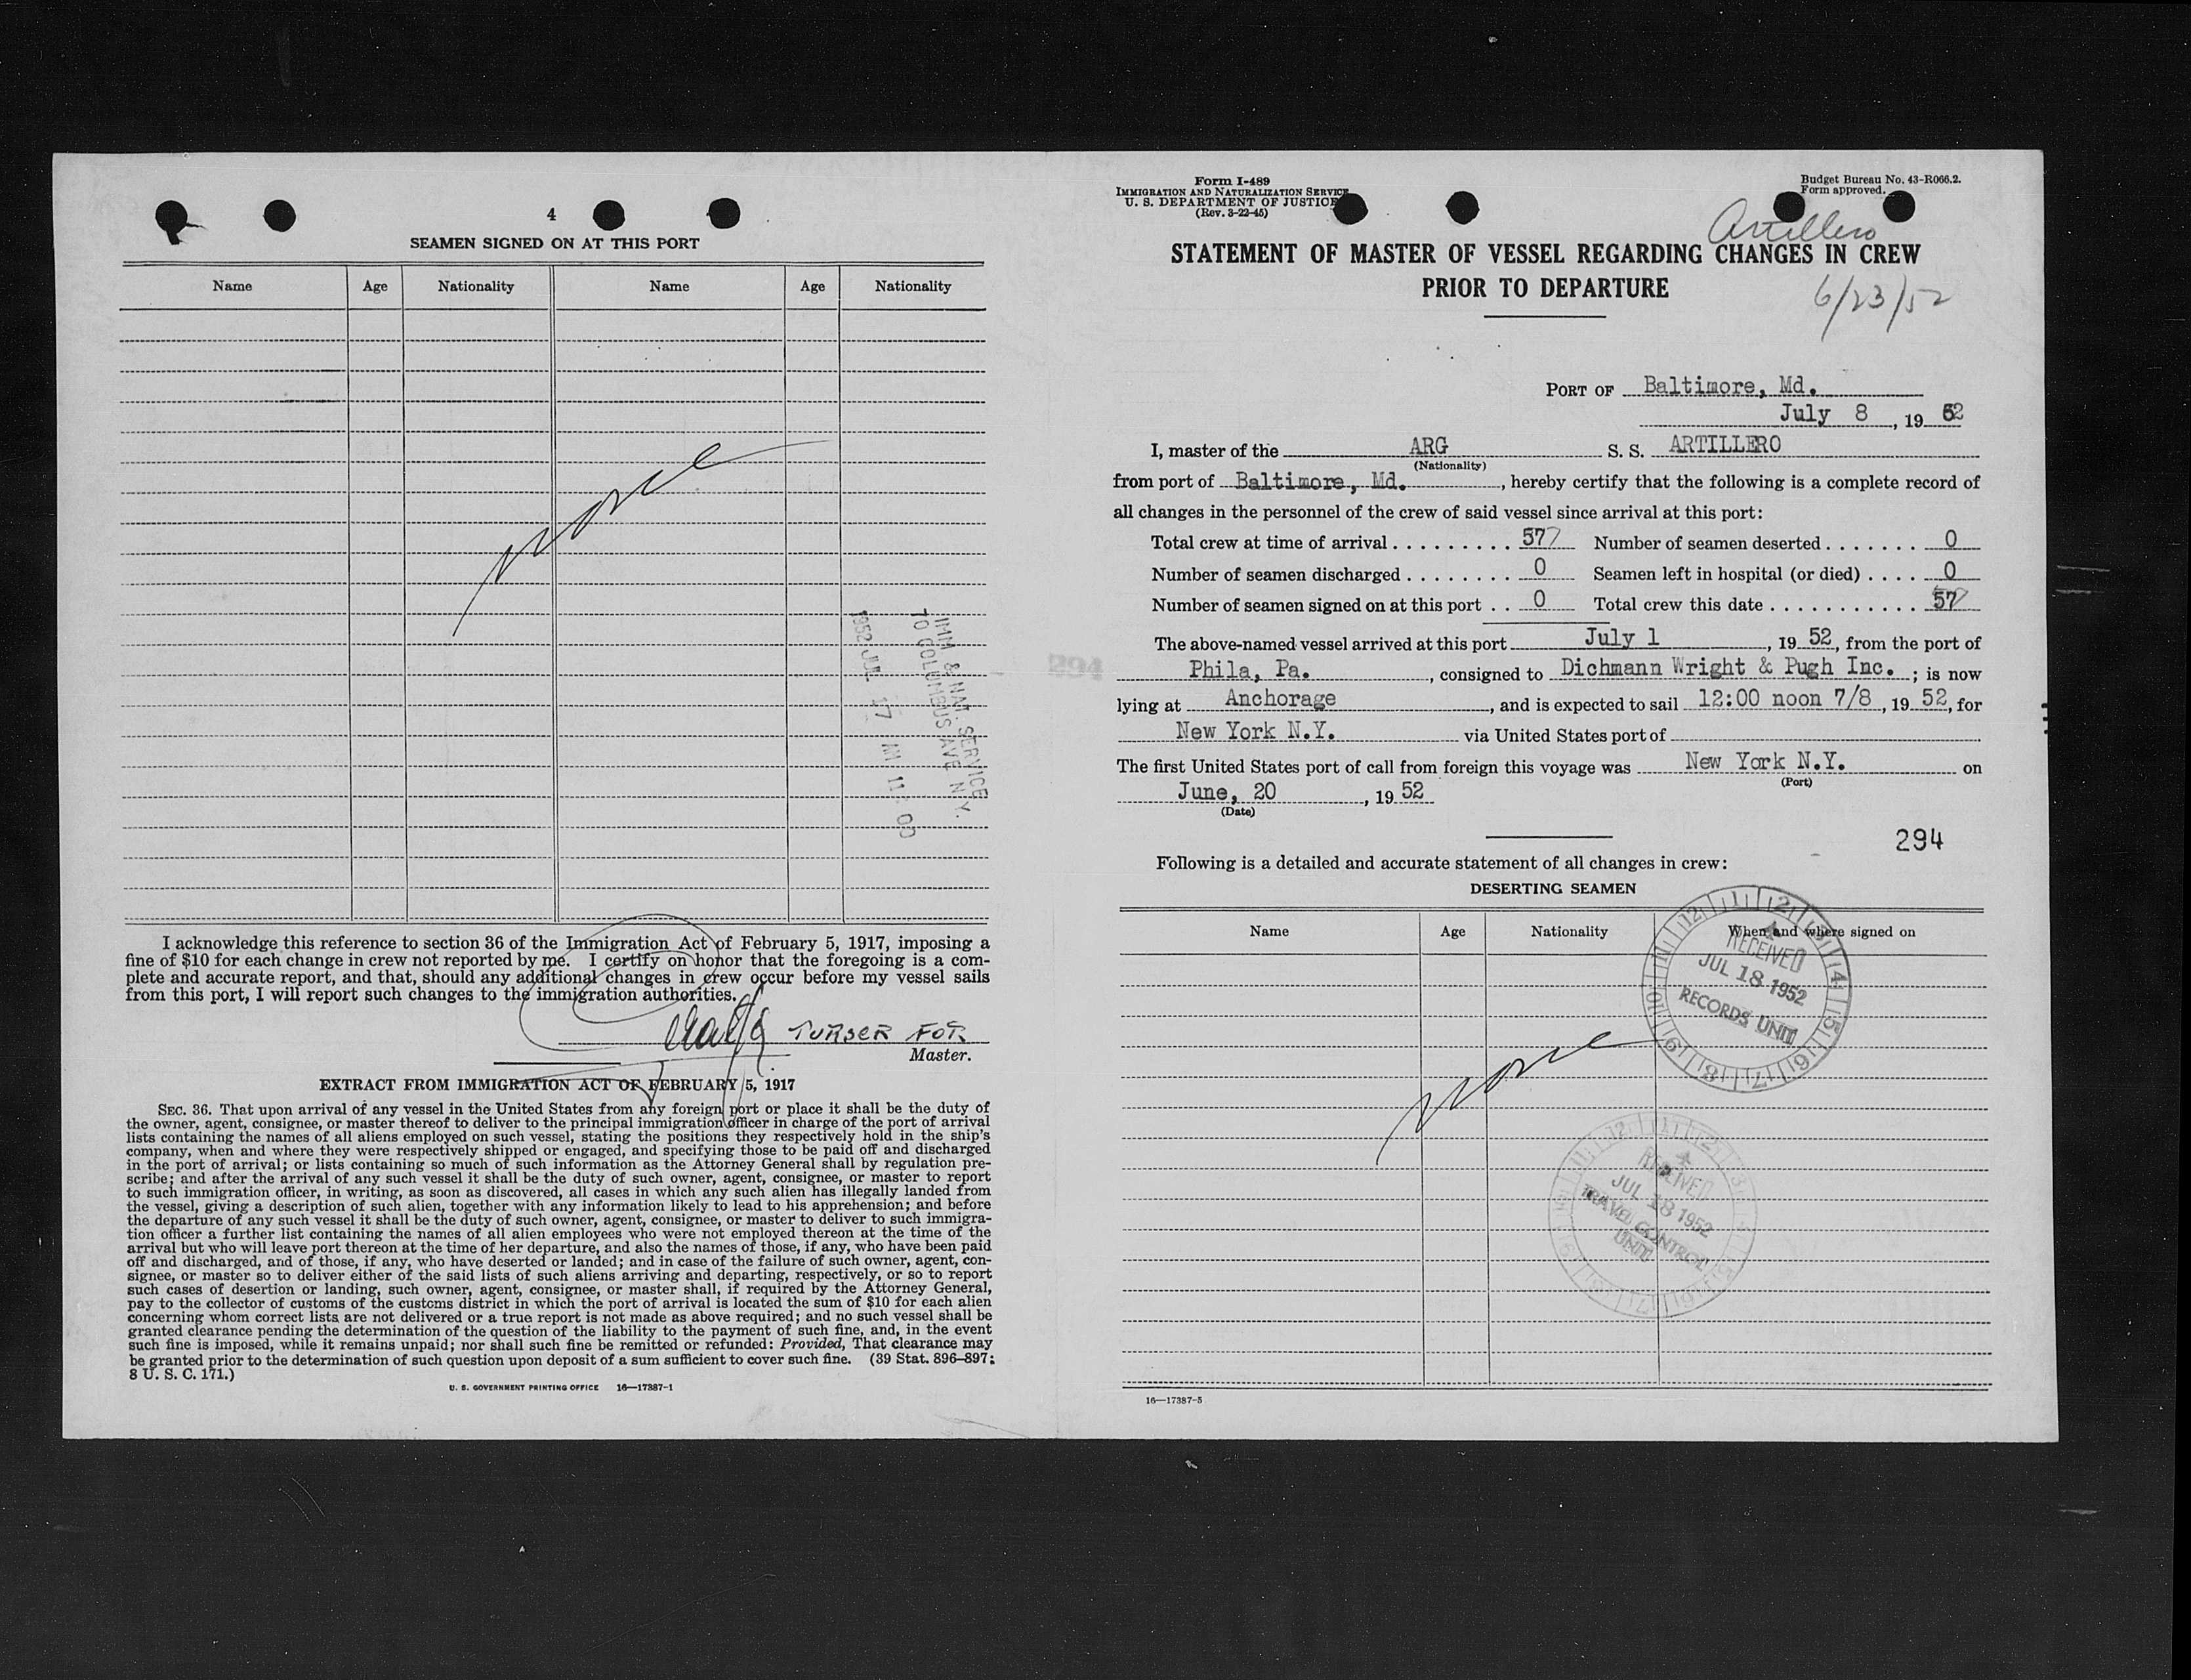 4
SEAMEN SIGNED ON AT THIS PORT
Name Age Nationality Name Age Nationality
None
IMM & NAT. SERVICE
70 COLUMBUS AVE N.Y.
1952 JUL 17 AM 11:00
I acknowledge this reference to section 36 of the Immigration Act of February 5, 1917, imposing a
fine of $10 for each change in crew not reported by me. I certify on honor that the foregoing is a com-
plete and accurate report, and that, should any additional changes in crew occur before my vessel sails
from this port, I will report such changes to the immigration authorities.
PURSER FOR
Master.
EXTRACT FROM IMMIGRATION ACT OF FEBRUARY 5, 1917
SEC. 36. That upon arrival of any vessel in the United States from any foreign port or place it shall be the duty of
the owner, agent, consignee, or master thereof to deliver to the principal immigration officer in charge of the port of arrival
lists containing the names of all aliens employed on such vessel, stating the positions they respectively hold in the ship's
company, when and where they were respectively shipped or engaged, and specifying those to be paid off and discharged
in the port of arrival; or lists containing so much of such information as the Attorney General shall by regulation pre-
scribe; and after the arrival of any such vessel it shall be the duty of such owner, agent, consignee, or master to report
to such immigration officer, in writing, as soon as discovered, all cases in which any such alien has illegally landed from
the vessel, giving a description of such alien, together with any information likely to lead to his apprehension; and before
the departure of any such vessel it shall be the duty of such owner, agent, consignee, or master to deliver to such immigra-
tion officer a further list containing the names of all alien employees who were not employed thereon at the time of the
arrival but who will leave port thereon at the time of her departure, and also the names of those, if any, who have been paid
off and discharged, and of those, if any, who have deserted or landed; and in case of the failure of such owner, agent, con-
signee, or master so to deliver either of the said lists of such aliens arriving and departing, respectively, or so to report
such cases of desertion or landing, such owner, agent, consignee, or master shall, if required by the Attorney General,
pay to the collector of customs of the customs district in which the port of arrival is located the sum of $10 for each alien
concerning whom correct lists are not delivered or a true report is not made as above required; and no such vessel shall be
granted clearance pending the determination of the question of the liability to the payment of such fine, and, in the event
such fine is imposed, while it remains unpaid; nor shall such fine be remitted or refunded: Provided, That clearance may
be granted prior to the determination of such question upon deposit of a sum sufficient to cover such fine. (39 Stat. 896-897;
8 U. S. C. 171.)
U. S. GOVERNMENT PRINTING OFFICE 16—17387-1
Form I-489
IMMIGRATION AND NATURALIZATION SERVICE
U. S. DEPARTMENT OF JUSTICE
(Rev. 3-22-45)
Budget Bureau No. 43-R066.2.
Form approved.
Artillero
STATEMENT OF MASTER OF VESSEL REGARDING CHANGES IN CREW
PRIOR TO DEPARTURE
6/23/52
PORT OF Baltimore, Md.
July 8, 19 52
I, master of the ARG S. S. ARTILLERO
(Nationality)
from port of Baltimore, Md., hereby certify that the following is a complete record of
all changes in the personnel of the crew of said vessel since arrival at this port:
Total crew at time of arrival . . . . . . . . . 57 Number of seamen deserted . . . . . . . 0
Number of seamen discharged . . . . . . . . 0 Seamen left in hospital (or died) . . . . 0
Number of seamen signed on at this port . . 0 Total crew this date . . . . . . . . . . . 57
The above-named vessel arrived at this port July 1, 19 52, from the port of
Phila, Pa., consigned to Dichmann Wright & Pugh Inc. ; is now
lying at Anchorage, and is expected to sail 12:00 noon 7/8, 19 52, for
New York N.Y. via United States port of
The first United States port of call from foreign this voyage was New York N.Y. on
(Port)
June, 20, 19 52
(Date)
294
Following is a detailed and accurate statement of all changes in crew:
DESERTING SEAMEN
Name Age Nationality When and where signed on
RECEIVED
JUL 18 1952
RECORDS UNIT
None
RECEIVED
JUL 18 1952
TRAVEL CONTROL
UNIT
16—17387-5